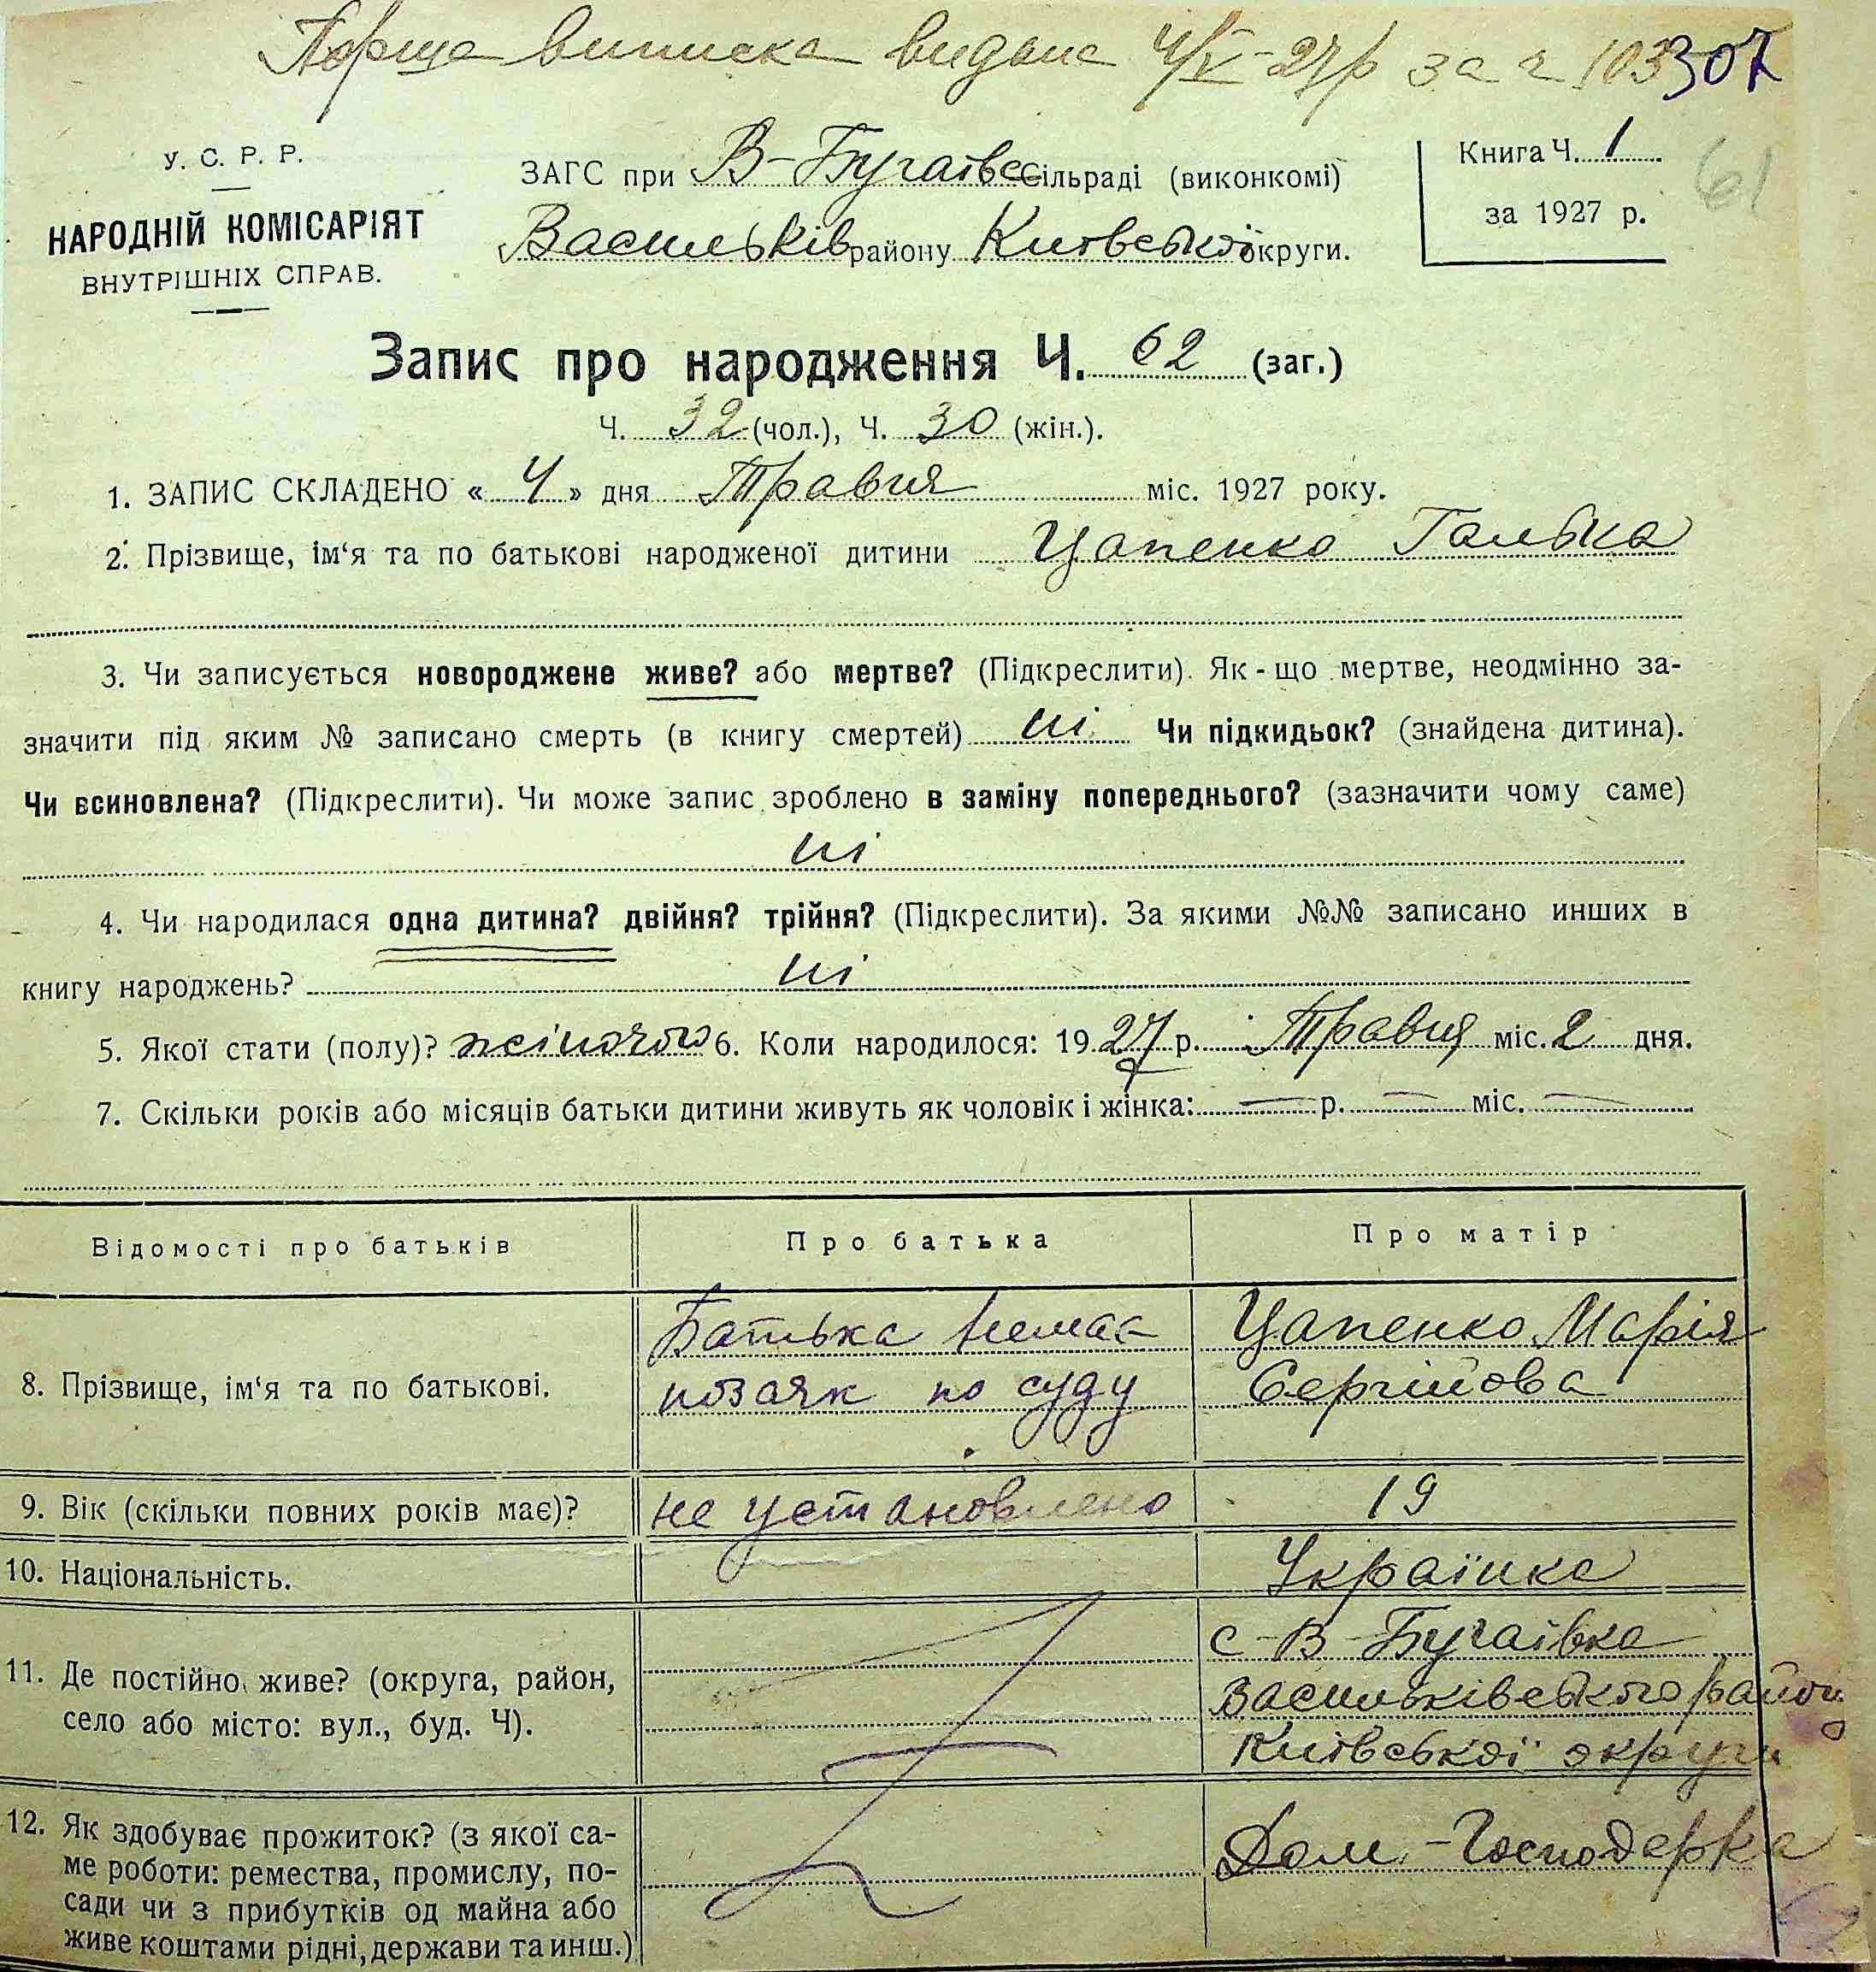 Перша виписка видана 4/V-27р за ч 103
307
У. С. Р. Р.
НАРОДНІЙ КОМІСАРІЯТ
ВНУТРІШНІХ СПРАВ.
ЗАГС при В-Бугаївс сільраді (виконкомі)
Васильків району Київської округи.
Книга Ч. 1
за 1927 р.
61
Запис про народження Ч. 62 (заг.)
Ч. 32 (чол.), Ч. 30 (жін.).
1. ЗАПИС СКЛАДЕНО « 4 » дня Травня міс. 1927 року.
2. Прізвище, ім‘я та по батькові народженої дитини Цапенко Галька
3. Чи записується новороджене живе? або мертве? (Підкреслити). Як-що мертве, неодмінно за-
значити під яким № записано смерть (в книгу смертей) ні Чи підкидьок? (знайдена дитина).
Чи всиновлена? (Підкреслити). Чи може запис зроблено в заміну попереднього? (зазначити чому саме)
ні
4. Чи народилася одна дитина? двійня? трійня? (Підкреслити). За якими №№ записано инших в
книгу народжень? ні
5. Якої стати (полу)? жіночого 6. Коли народилося: 1927 р. Травня міс. 2 дня.
7. Скільки років або місяців батьки дитини живуть як чоловік і жінка: — р. — міс. —
Відомості про батьків
Про батька
Про матір
8. Прізвище, ім‘я та по батькові.
Батька немає
позаяк по суду
Цапенко Марія
Сергійова
9. Вік (скільки повних років має)?
не установлено
19
10. Національність.
Українка
11. Де постійно живе? (округа, район,
село або місто: вул., буд. Ч).
с-В-Бугаївка
Васильківського району
Київської округи
12. Як здобуває прожиток? (з якої са-
ме роботи: ремества, промислу, по-
сади чи з прибутків од майна або
живе коштами рідні, держави та инш.)
Дом-Господарка